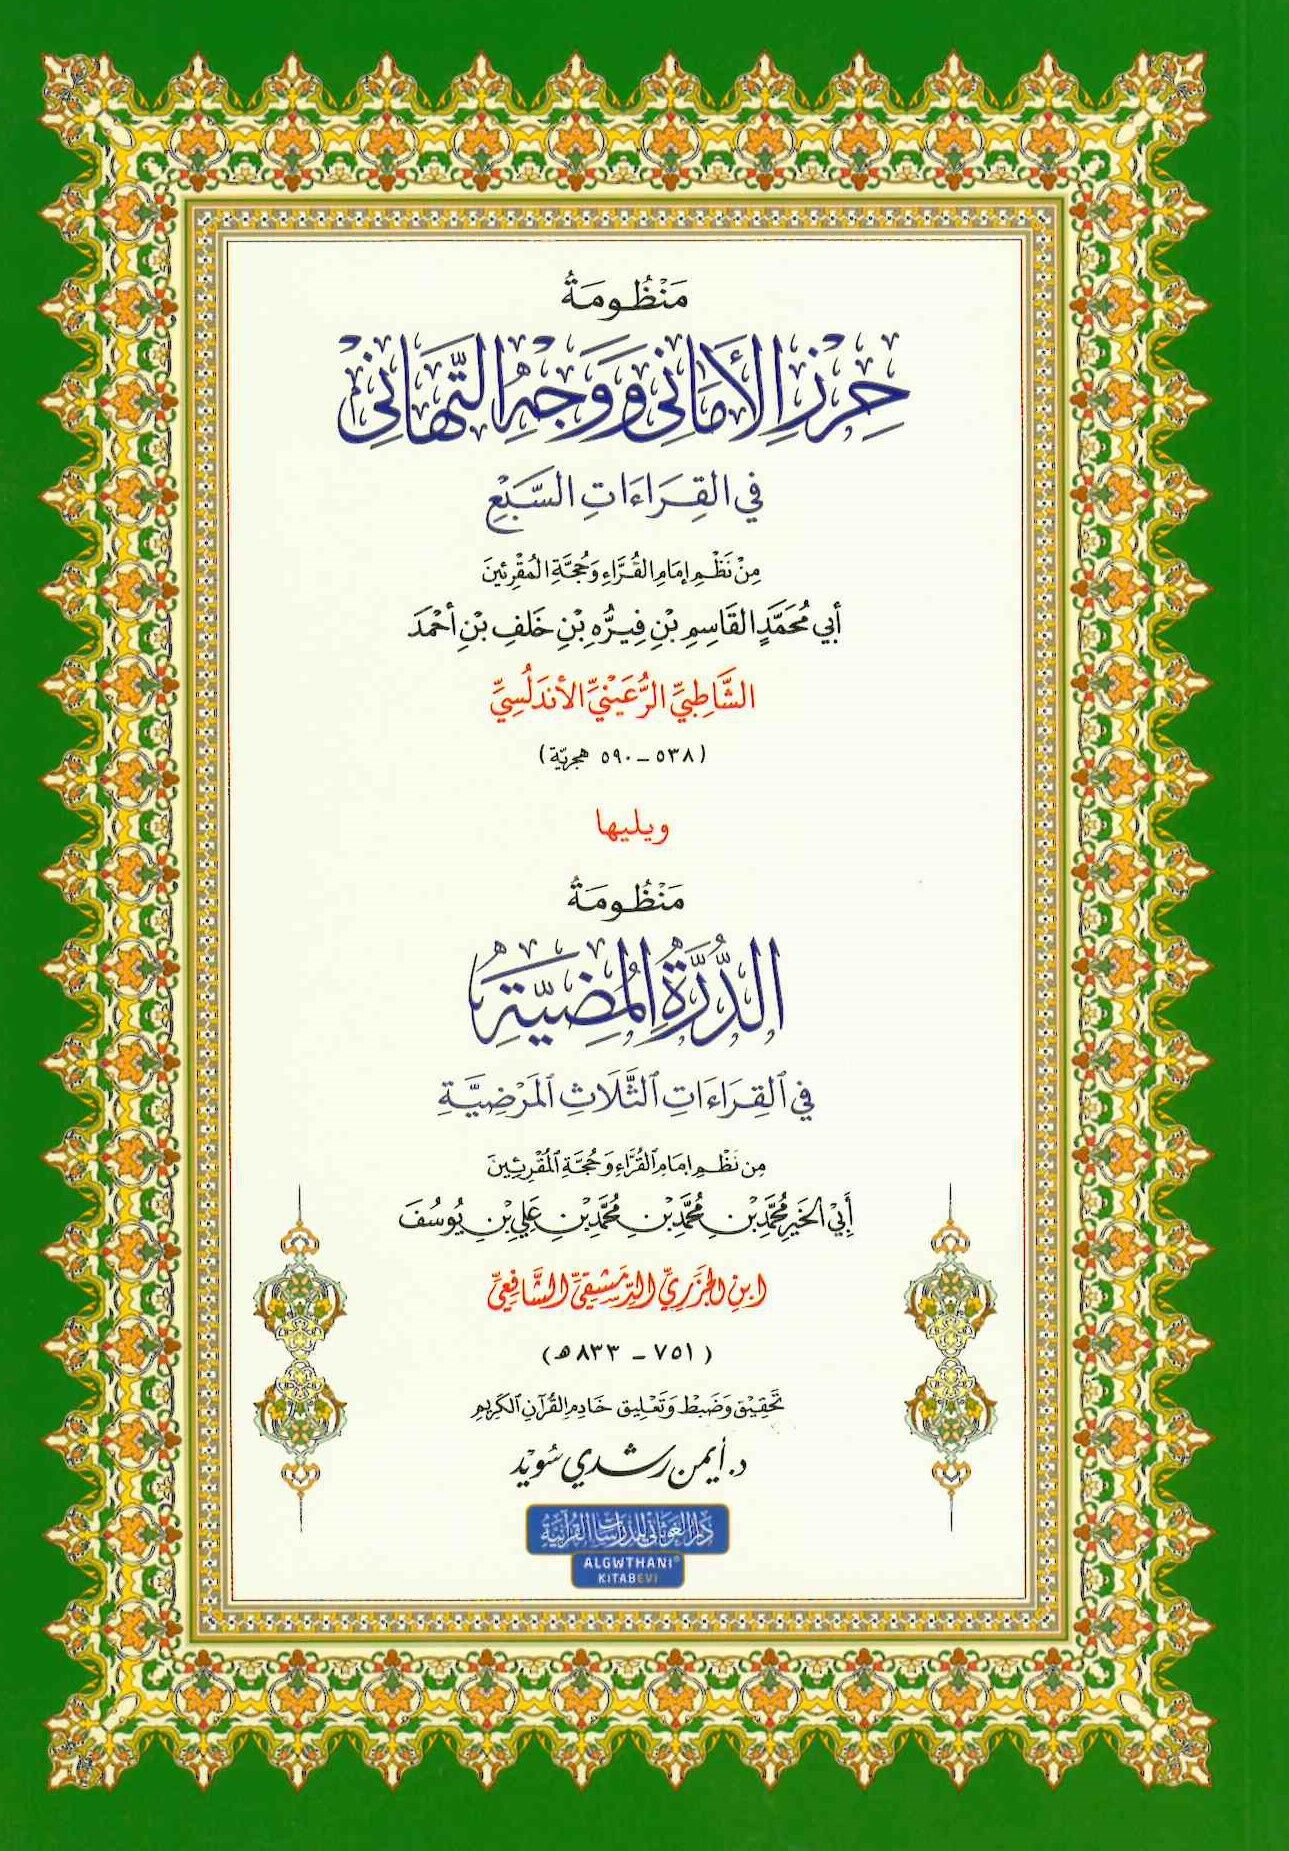 مَنْظُومَةُ
حِرْزِ الْأَمَانِي وَوَجْهِ التَّهَانِي
فِي القِرَاءَاتِ السَّبْعِ
مِنْ نَظْمِ إمَامِ القُرَّاءِ وَحُجَّةِ المُقْرِئِينَ
أبِي مُحَمَّدٍ القَاسِمِ بْنِ فِيرُّه بْنِ خَلَفِ بْنِ أحْمَدَ
الشَّاطِبِيِّ الرُّعَيْنِيِّ الأندَلُسِيِّ
(٥٣٨ - ٥٩٠ هجريّة)
ويليها
مَنْظُومَةُ
الدُّرَّةِ المُضِيَّةِ
فِي ٱلقِرَاءَاتِ ٱلثَّلَاثِ ٱلمَرْضِيَّةِ
مِن نَظْمِ إمَامِ ٱلقُرَّاءِ وَحُجَّةِ ٱلمُقْرِئِينَ
أَبِي الخَيْرِ مُحَمَّدِ بْنِ مُحَمَّدِ بْنِ مُحَمَّدِ بْنِ عَلِيِّ بْنِ يُوسُفَ
ابنِ الجَزَرِيِّ الدِّمَشْقِيِّ الشَّافِعِيِّ
(٧٥١ - ٨٣٣ هـ)
تَحْقِيق وَضَبْط وَتَعْلِيق خَادِمِ القُرآنِ ٱلكَرِيم
د. أيمن رشدي سُوَيْد
دَارُ الغَوْثَانِي لِلدِّرَاسَاتِ القُرْآنِيَّةِ
ALGWTHANI®
KITABEVI